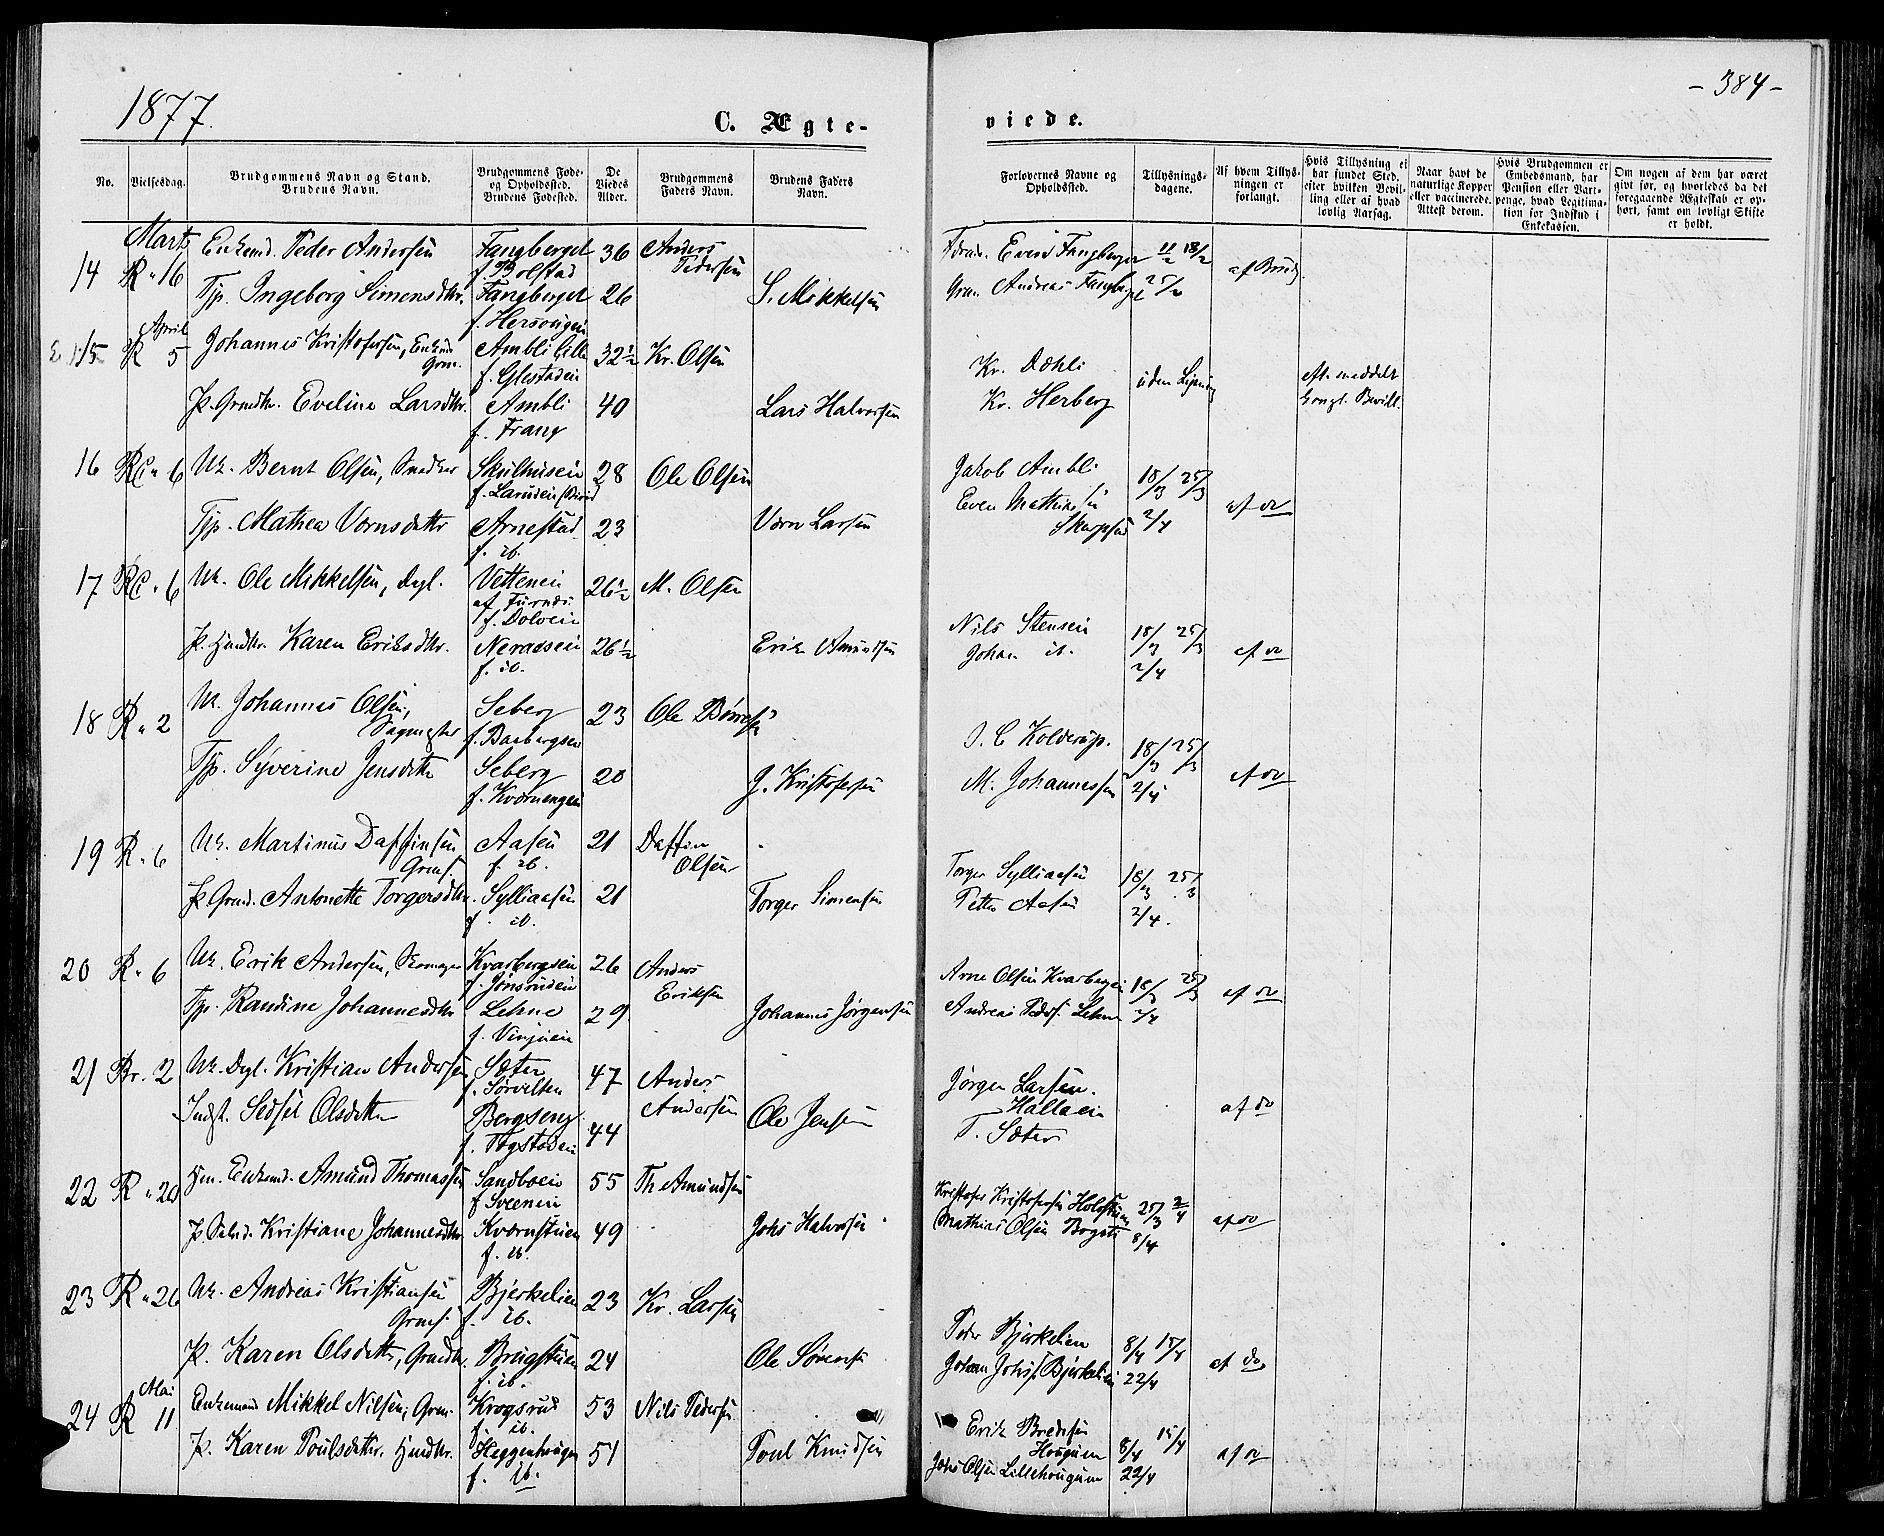 1877.
- 384 -
C. Ægte-
viede.
No.
Vielsesdag.
Brudgommens Navn og Stand.
Brudens Navn.
Brudgommens Føde-
og Opholdssted.
Brudens Fødested.
De
Viedes
Alder.
Brudgommens
Faders Navn.
Brudens Faders
Navn.
Forlovernes Navne og
Opholdssted.
Tillysnings-
dagene.
Af hvem Tillys-
ningen er
forlangt.
Hvis Tillysning ei
har fundet Sted,
efter hvilken Bevil-
ling eller af hvad
lovlig Aarsag.
Naar havt de
naturlige Kopper
eller vaccinerede.
Attest derom.
Hvis Brudgommen er
Embedsmand, har
Pension eller Vart-
penge, hvad Legitima-
tion for Indskud i
Enkekassen.
Om nogen af dem har været
givt før, og hvorledes da det
foregaaende Ægteskab er op-
hørt, samt om lovligt Skifte
er holdt.
Marts
14 R " 16 Enkemd. Peder Andersen Fangberget 36 Anders Pedersen
f. Bolstad
Tjp. Ingeborg Simensdtr. Fangberget 26 S. Mikkelsen
f.
Even Fangberget 11/2 18/2
Andreas Fangberget 25/2 af Brudg.
April
15 R 5 Johannes Kristofersen, Enkem. Ambli 32½ Kr. Olsen
Grm. f. Glestadeie
P. Grmdtr. Eveline Larsdtr. Ambli 40 Lars Halvorsen
f. Frang
Kr. Dæhli
Kr. Herberg
uden Lysning
eft. meddelt
kongl. Bevill.
16 6 Uk. Bernt Olsen, Snedker 28 Ole Olsen
Tjp. Mathea Vornsdattr Arnestad 23 Vorn Larsen
f. ib.
Jakob Ambli 18/3 25/3
Even Mathisen 2/4 af do
17 6 Uk. Ole Mikkelsen, Dagl. Vetteneie 26½ M. Olsen
af Furnds.
f. Dolveie
P. Hmdtr. Karen Eriksdtr. 26½ Erik Amundsen
f. ib.
Nils Stenseie 18/3 25/3
Johan ib. 2/4 af do
18 R " 2 Uk. Johannes Olsen, Seberg 23 Ole
Sagmester
Tjp. Syverine Jensdattr Seberg 20 J. Kristofersen
f. Kværnengen
O. C. Kolderup. 18/3 25/3
M. Johannessen 2/4 af do
19 R " 6 Uk. Martinus Daffinsen Aasen 21 Daffin Olsen
Grms. f. ib.
P. Grmd. Antonette Torgersdtr. Sylliaasen 21 Torger Simensen
f. ib.
Torger Sylliaasen 18/3 25/3
Petter Aasen 2/4.
20 R " 6 Uk. Erik Andersen, Skomager Kvarbergseie 26 Anders Eriksen
f. Jønsrudeie
Tjp. Randine Johannesdtr Lehne 29 Johannes Jørgensen
Arne Olsen Kvarbergeie 18/3 25/3
Andreas Peders. Lehne 2/4 af do
21 Br. 2 Uk. Dagl. Kristian Andersen Sæter 47 Anders Andersen
f. Sørvilten
Indst. Sidsel Olsdatter Bergseng 44 Ole Jensen
Jørgen Larsen
T. Sæter
af do
22 R " 20 Hm. Enkemd. Amund Thomassen Sandboeie 55 Th. Amundsen
f. Sveeneie
Kristiane Johannesdtr Kværnstuen 49 Johs Halvorsen
f. ib.
Kristofer Kristofersen 25/3 2/4
Mathias Olsen 8/4 af do
23 R " 26 Uk. Andreas Kristiansen Bjerkelien 23 Kr. Larsen
Grms. f. ib.
P. Karen Olsdattr, Grmdtr. 24 Ole Sørensen
f. ib.
Peder Bjerkelien 8/4 15/4
Johan Johs. Bjerkelien 22/4 af do
Mai
24 R 11 Enkemand Mikkel Nilsen, Grm. Krogsrud 53 Nils Pedersen
f. ib.
P. Karen Poulsdattr. Hmdtr. Heggenhaugen 51 Poul Knudsen
f. ib.
Erik Bredesen 8/4 15/4
Haugum
Johs Olsen Lillehaugum 22/4 af do